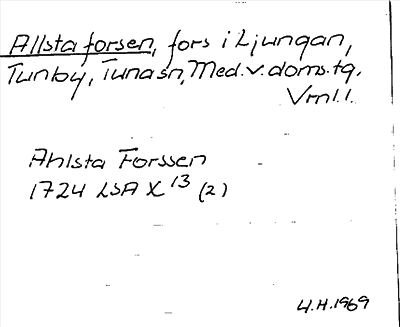 Allstaforsen, fors i Ljungan,
Tunby, Tuna sn, Med.v. doms. tg.
Vrnl.l.
Ahlsta Forssen
1724 LSA X 13 (2)
4.H.1969